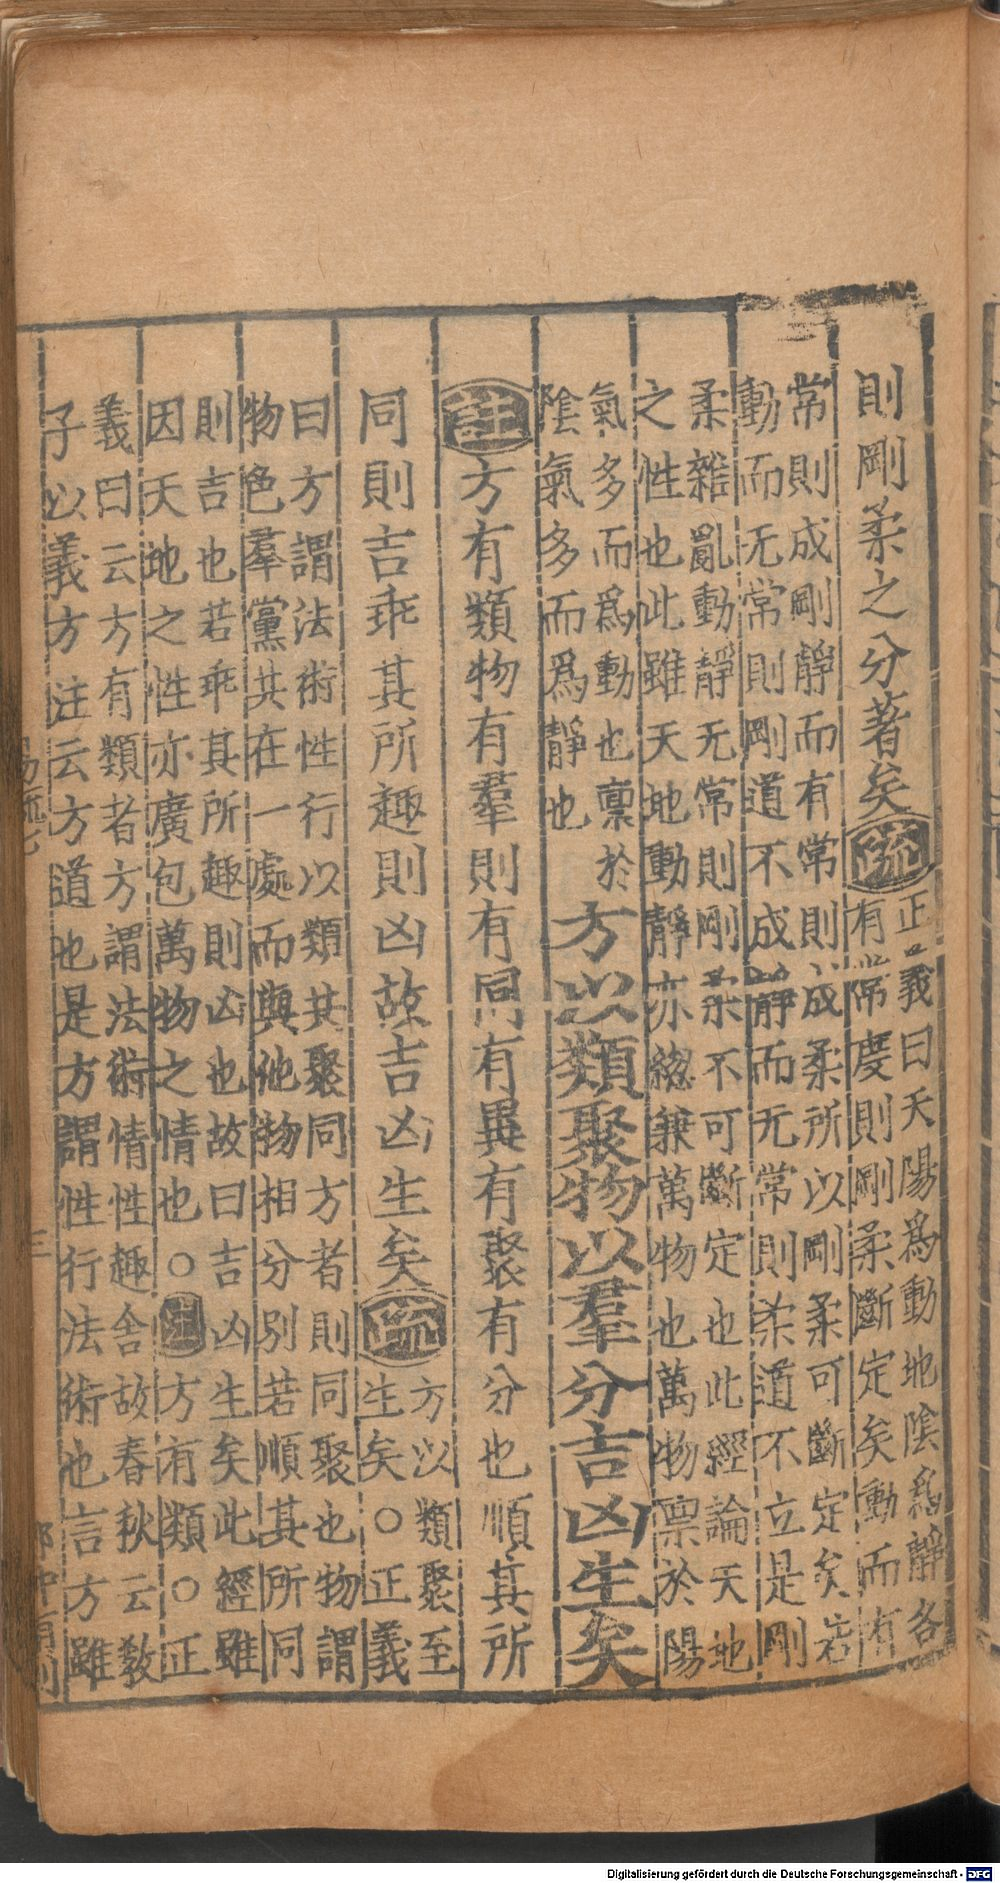 則剛柔之分著矣疏正義曰天陽爲動地陰爲靜各
有常度則剛柔斷定矣動而有
常則成剛靜而有常則成柔所以剛柔可斷定矣若
動而无常則剛道不成靜而无常則柔道不立是剛
柔雜亂動靜无常則剛柔不可斷定也此經論天地
之性也此雖天地動靜亦緫兼萬物也萬物禀於陽
氣多而爲動也禀於
陰氣多而爲靜也
方以類聚物以羣分吉凶生矣
註方有類物有羣則有同有異有聚有分也順其所
同則吉乖其所趣則凶故吉凶生矣疏方以類聚至
生矣○正義
曰方謂法術性行以類共聚同方者則同聚也物謂
物色羣黨共在一處而與他物相分別若順其所同
則吉也若乖其所趣則凶也故曰吉凶生矣此經雖
因天地之性亦廣包萬物之情也○注方有類○正
義曰云方有類者方謂法術情性趣舍故春秋云敎
子以義方注云方道也是方謂性行法術也言方雖
三
Digitalisierung gefördert durch die Deutsche Forschungsgemeinschaft - DFG